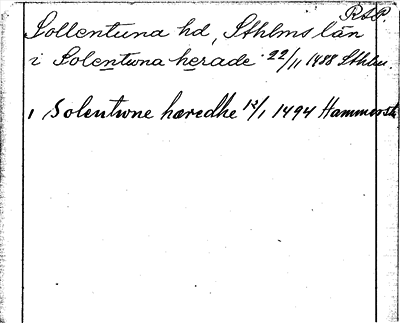 RAP.
Sollentuna hd, Sthlms län
i Solentwna herade 22/11 1488 Sthlm.
i Solentwne hæredhe 12/1 1494 Hammerst